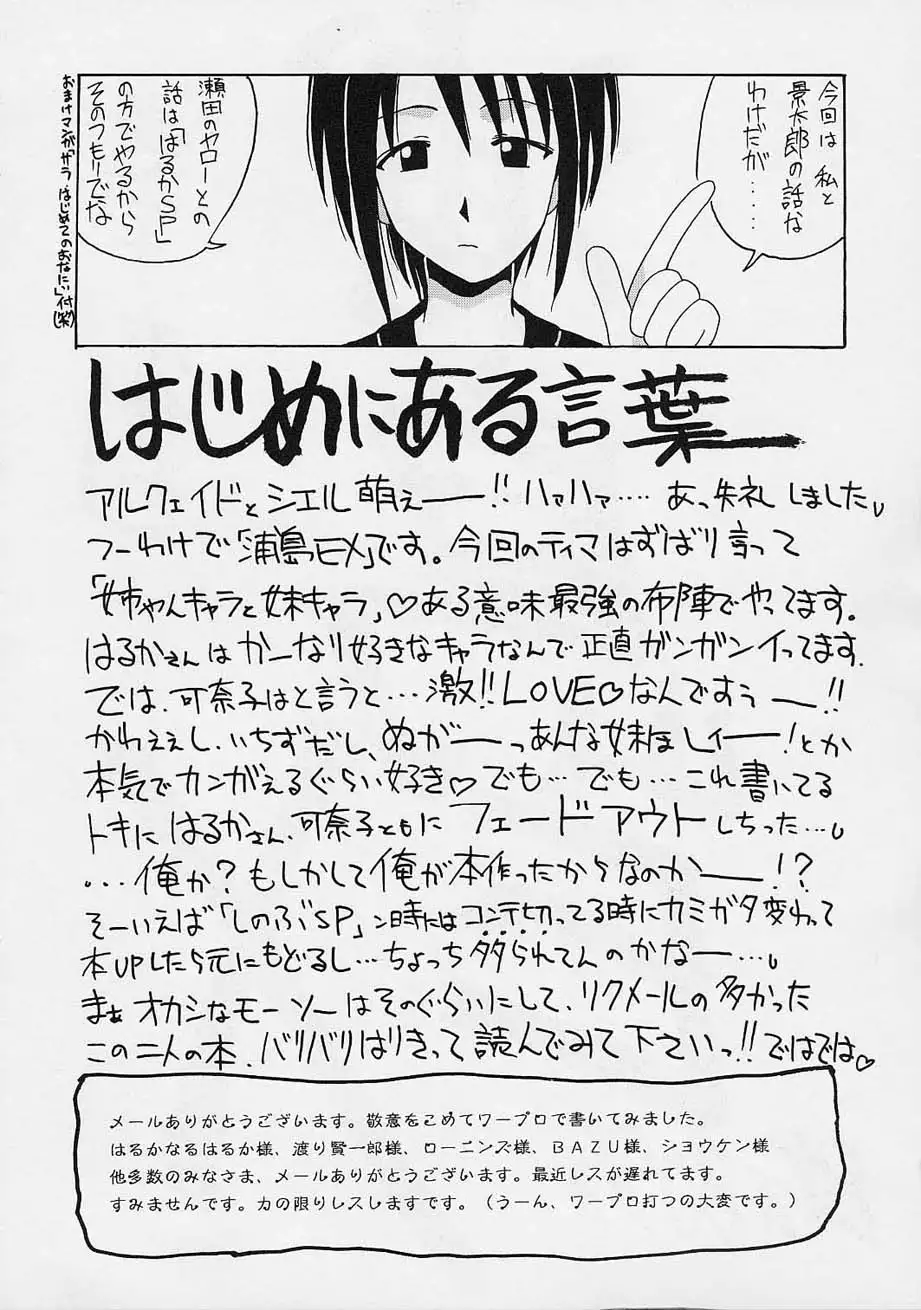 今回は 私と
景太郎の話な
わけだが・・・・
瀬田のヤローとの
話は「はるかSP」
の方でやるから
そのつもりでな
はじめにある言葉
アルクェイドとシエル萌えー!! ハァハァ‥‥ あっ失礼しました
つーわけで「浦島EX」です。今回のティマはずばり言って
「姉ちゃんキャラと妹キャラ」♡ある意味最強の布陣でやってます。
はるかさんはかーなり好きなキャラなんで正直ガンガンイってます.
では、可奈子はと言うと…激!!LOVE♡なんですぅー!!
かわええし、いちずだし、ぬがーっあんな妹ほしィー!とか
本気でカンがえるぐらい好き♡でも…でも…これ書いてる
トキにはるかさん、可奈子ともにフェードアウトしちった…
…俺か?もしかして俺が本作ったからなのかー!?
そーいえば「しのぶSP」ン時にはコンテ切ってる時にカミガタ変わって
本UPしたら元にもどるし…ちょっち 見られてんのかなー…
まぁ オカシなモーソーはそのぐらいにして、リクメールの多かった
この二人の本、バリバリはりきって読んでみて下さいっ!!ではでは♡
メールありがとうございます。敬意をこめてワープロで書いてみました。
はるかなるはるか様、渡り賢一郎様、ローニンズ様、BAZU様、ショウケン様
他多数のみなさま、メールありがとうございます。最近レスが遅れてます。
すみませんです。力の限りレスしますです。（うーん、ワープロ打つの大変です。）